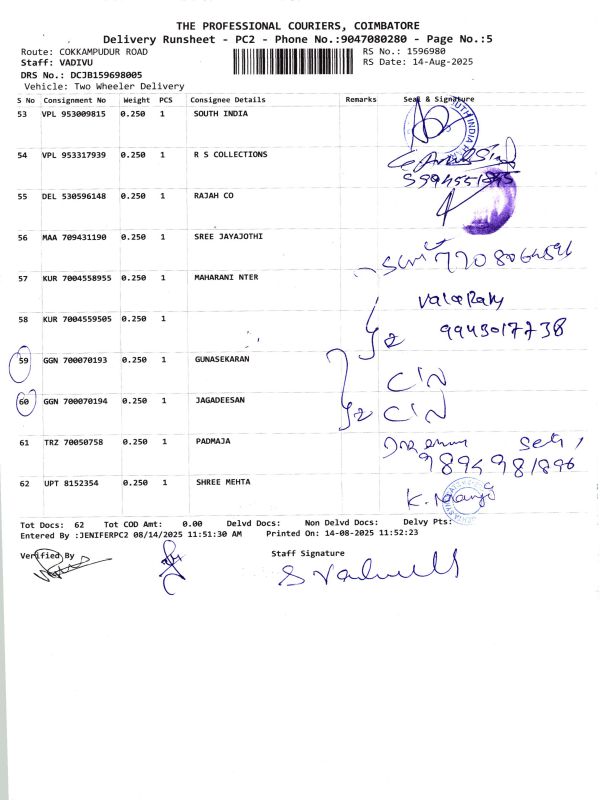 THE PROFESSIONAL COURIERS, COIMBATORE
Delivery Runsheet - PC2 - Phone No.:9047080280 - Page No.:5
Route: COKKAMPUDUR ROAD RS No.: 1596980
Staff: VADIVU RS Date: 14-Aug-2025
DRS No.: DCJB159698005
Vehicle: Two Wheeler Delivery
S No Consignment No Weight PCS Consignee Details Remarks Seal & Signature
53 VPL 953009815 0.250 1 SOUTH INDIA
54 VPL 953317939 0.250 1 R S COLLECTIONS
55 DEL 530596148 0.250 1 RAJAH CO
56 MAA 709431190 0.250 1 SREE JAYAJOTHI
57 KUR 7004558955 0.250 1 MAHARANI NTER
58 KUR 7004559505 0.250 1
9943017738
59 GGN 700070193 0.250 1 GUNASEKARAN
60 GGN 700070194 0.250 1 JAGADEESAN
61 TRZ 70050758 0.250 1 PADMAJA
9894981896
62 UPT 8152354 0.250 1 SHREE MEHTA
Tot Docs: 62 Tot COD Amt: 0.00 Delvd Docs: Non Delvd Docs: Delvy Pts:
Entered By :JENIFERPC2 08/14/2025 11:51:30 AM Printed On: 14-08-2025 11:52:23
Verified By Staff Signature